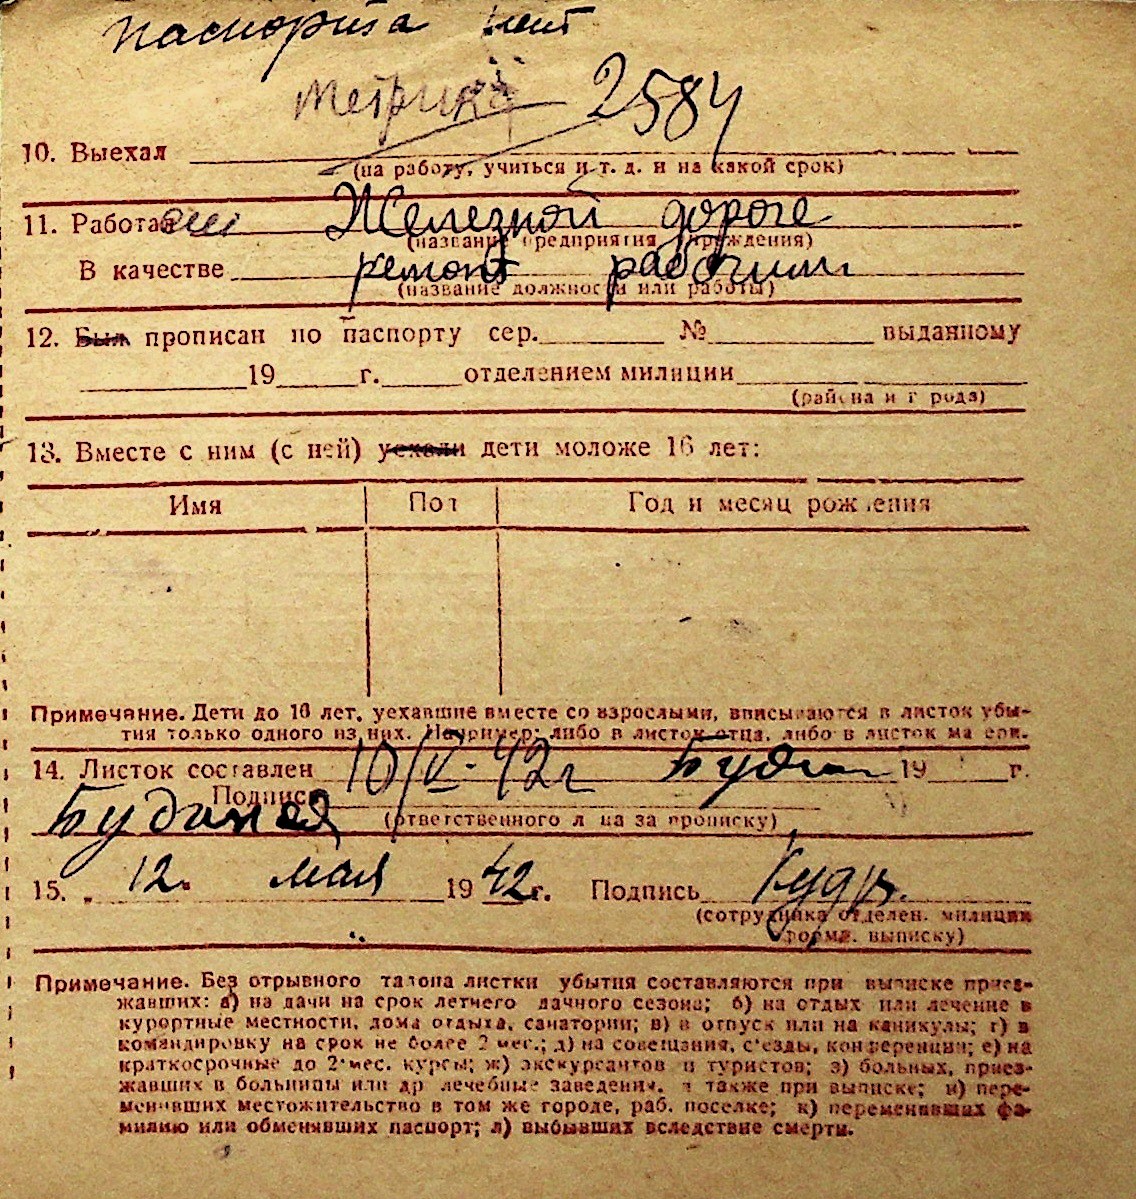 паспорта нет
метрика 2584
10. Выехал
(на работу, учиться и т. д. и на какой срок)
11. Работал Железной дороге
(название предприятия учреждения)
В качестве ремонт рабочим
(название должности или работы)
12. Был прописан по паспорту сер. № выданному
19 г. отделением милиции
(района и города)
13. Вместе с ним (с ней) уехали дети моложе 16 лет:
Имя Пол Год и месяц рождения
Примечание. Дети до 16 лет, уехавшие вместе со взрослыми, вписываются в листок убы-
тия только одного из них. Например: либо в листок отца, либо в листок матери.
14. Листок составлен 10/V-42г 19 г.
Подпись
(ответственного лица за прописку)
15. „ 12. мая 1942г. Подпись
(сотрудника отделен. милиции
форма. выписку)
Примечание. Без отрывного талона листки убытия составляются при выписке приез-
жавших: а) на дачи на срок летнего дачного сезона; б) на отдых или лечение в
курортные местности, дома отдыха, санатории; в) в отпуск или на каникулы; г) в
командировку на срок не более 2 мес.; д) на совещания, с'езды, конференции; е) на
краткосрочные до 2-мес. курсы; ж) экскурсантов и туристов; з) больных, приез-
жавших в больницы или др лечебные заведения, а также при выписке; и) пере-
менивших местожительство в том же городе, раб. поселке; к) переменивших фа-
милию или обменявших паспорт; л) выбывших вследствие смерти.